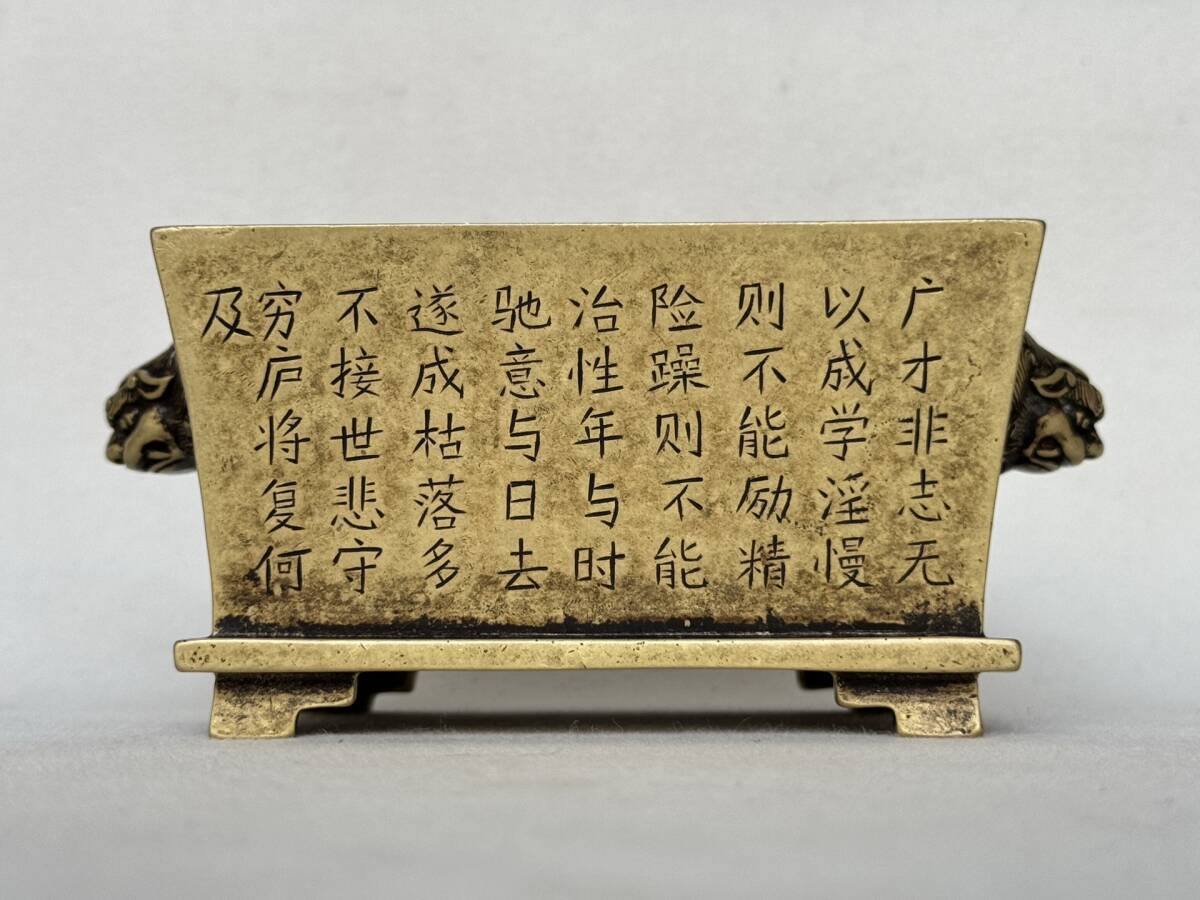 广才非志无
以成学淫慢
则不能励精
险躁则不能
治性年与时
驰意与日去
遂成枯落多
不接世悲守
穷庐将复何
及